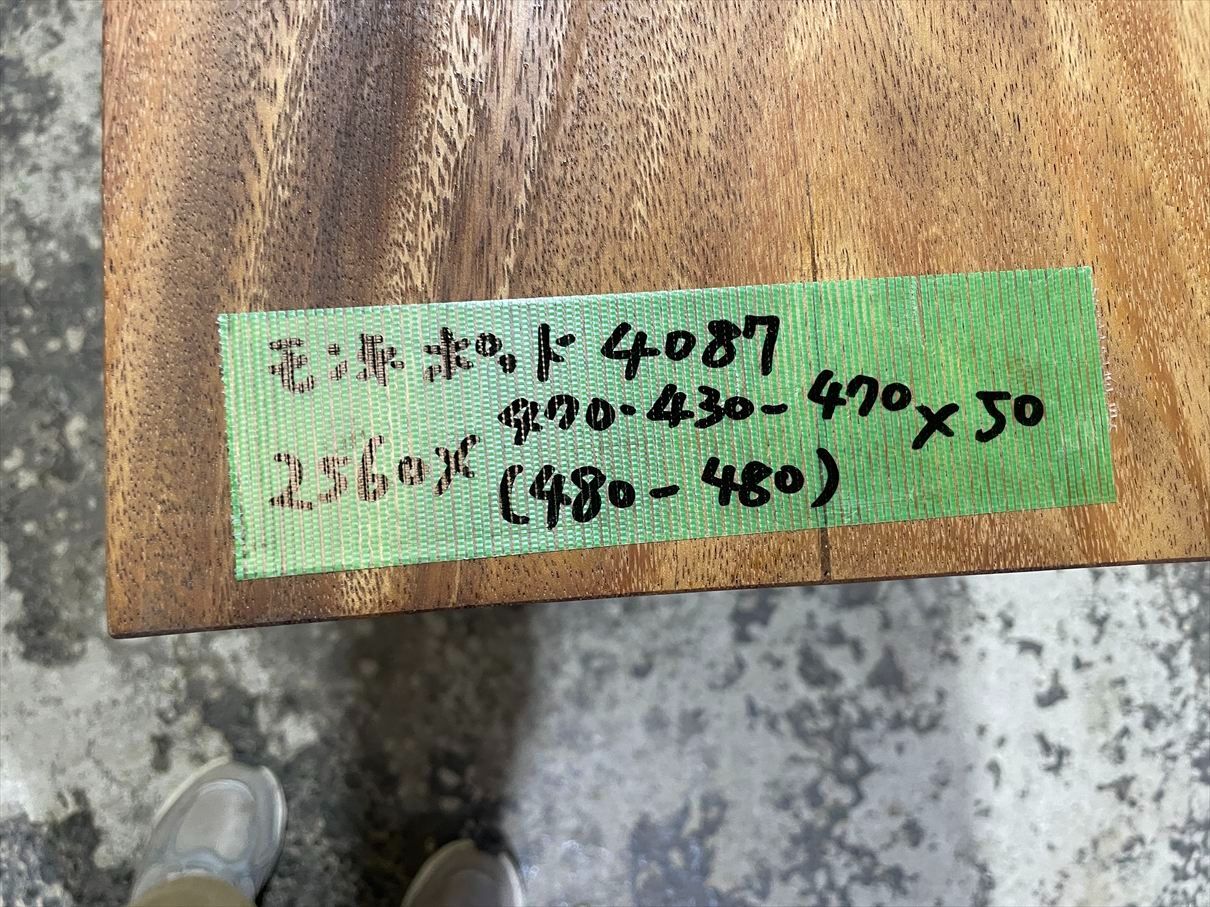 モンキーポッド 4087
2560×470-430-470×50
(480-480)